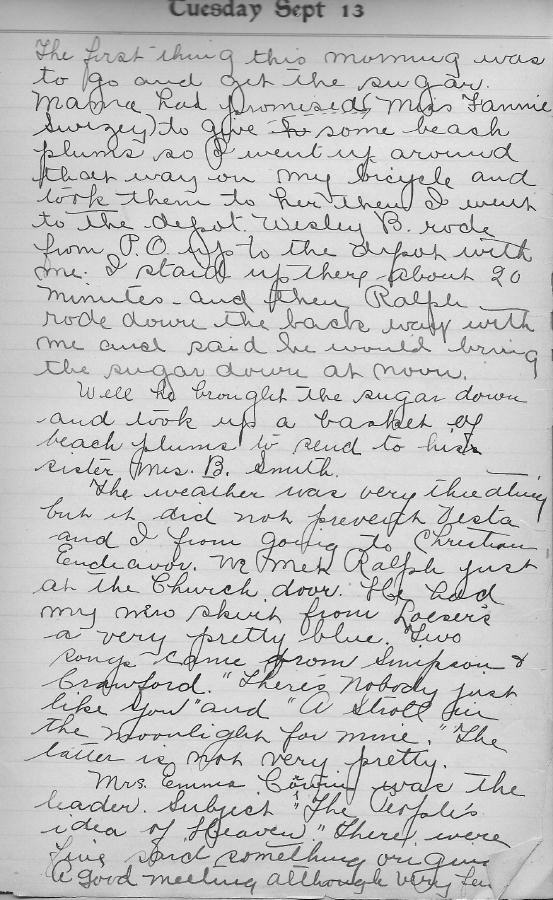 Tuesday Sept 13
The first thing this morning was
to go and get the sugar.
Mama had promised (Miss Fannie
Swizey) to give some beach
plums so I went up around
that way on my bicycle and
took them to her then I went
to the depot. Wesley B. rode
from P.O. up to the depot with
me. I staid up there about 20
minutes and then Ralph
rode down the back way with
me and said he would bring
the sugar down at noon.
Well he brought the sugar down
and took up a basket of
beach plums to send to his
sister Mrs. B. Smith.
The weather was very
but it did not prevent Vesta
and I from going to Christian
Endeavor. We met Ralph just
at the Church door. He had
my new skirt from Loeser's
a very pretty blue. Two
songs came from Simpson &
Crawford. "There's Nobody just
like You" and "A Stroll in
the moonlight for mine." The
latter is not very pretty.
Mrs. Emma was the
leader. Subject "The People's
idea of Heaven" There were
five said something
A good meeting although very